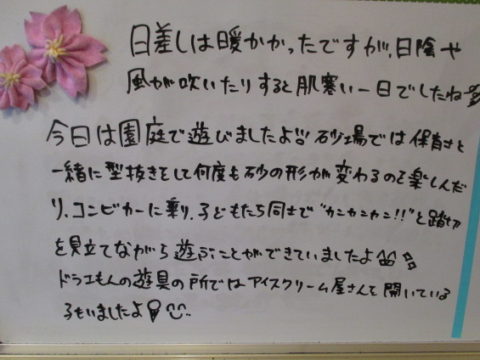 日差しは暖かかったですが、日陰や
風が吹いたりすると肌寒い一日でしたね
今日は園庭で遊びましたよ!! 砂場では保育士と
一緒に型抜きをして何度も砂の形が変わるのを楽しんだ
り、コンビカーに乗り、子どもたち同士で"カンカンカン!!"と踏切
を見立てながら遊ぶことができていましたよ
ドラエもんの遊具の所ではアイスクリーム屋さんを開いている
子もいましたよ